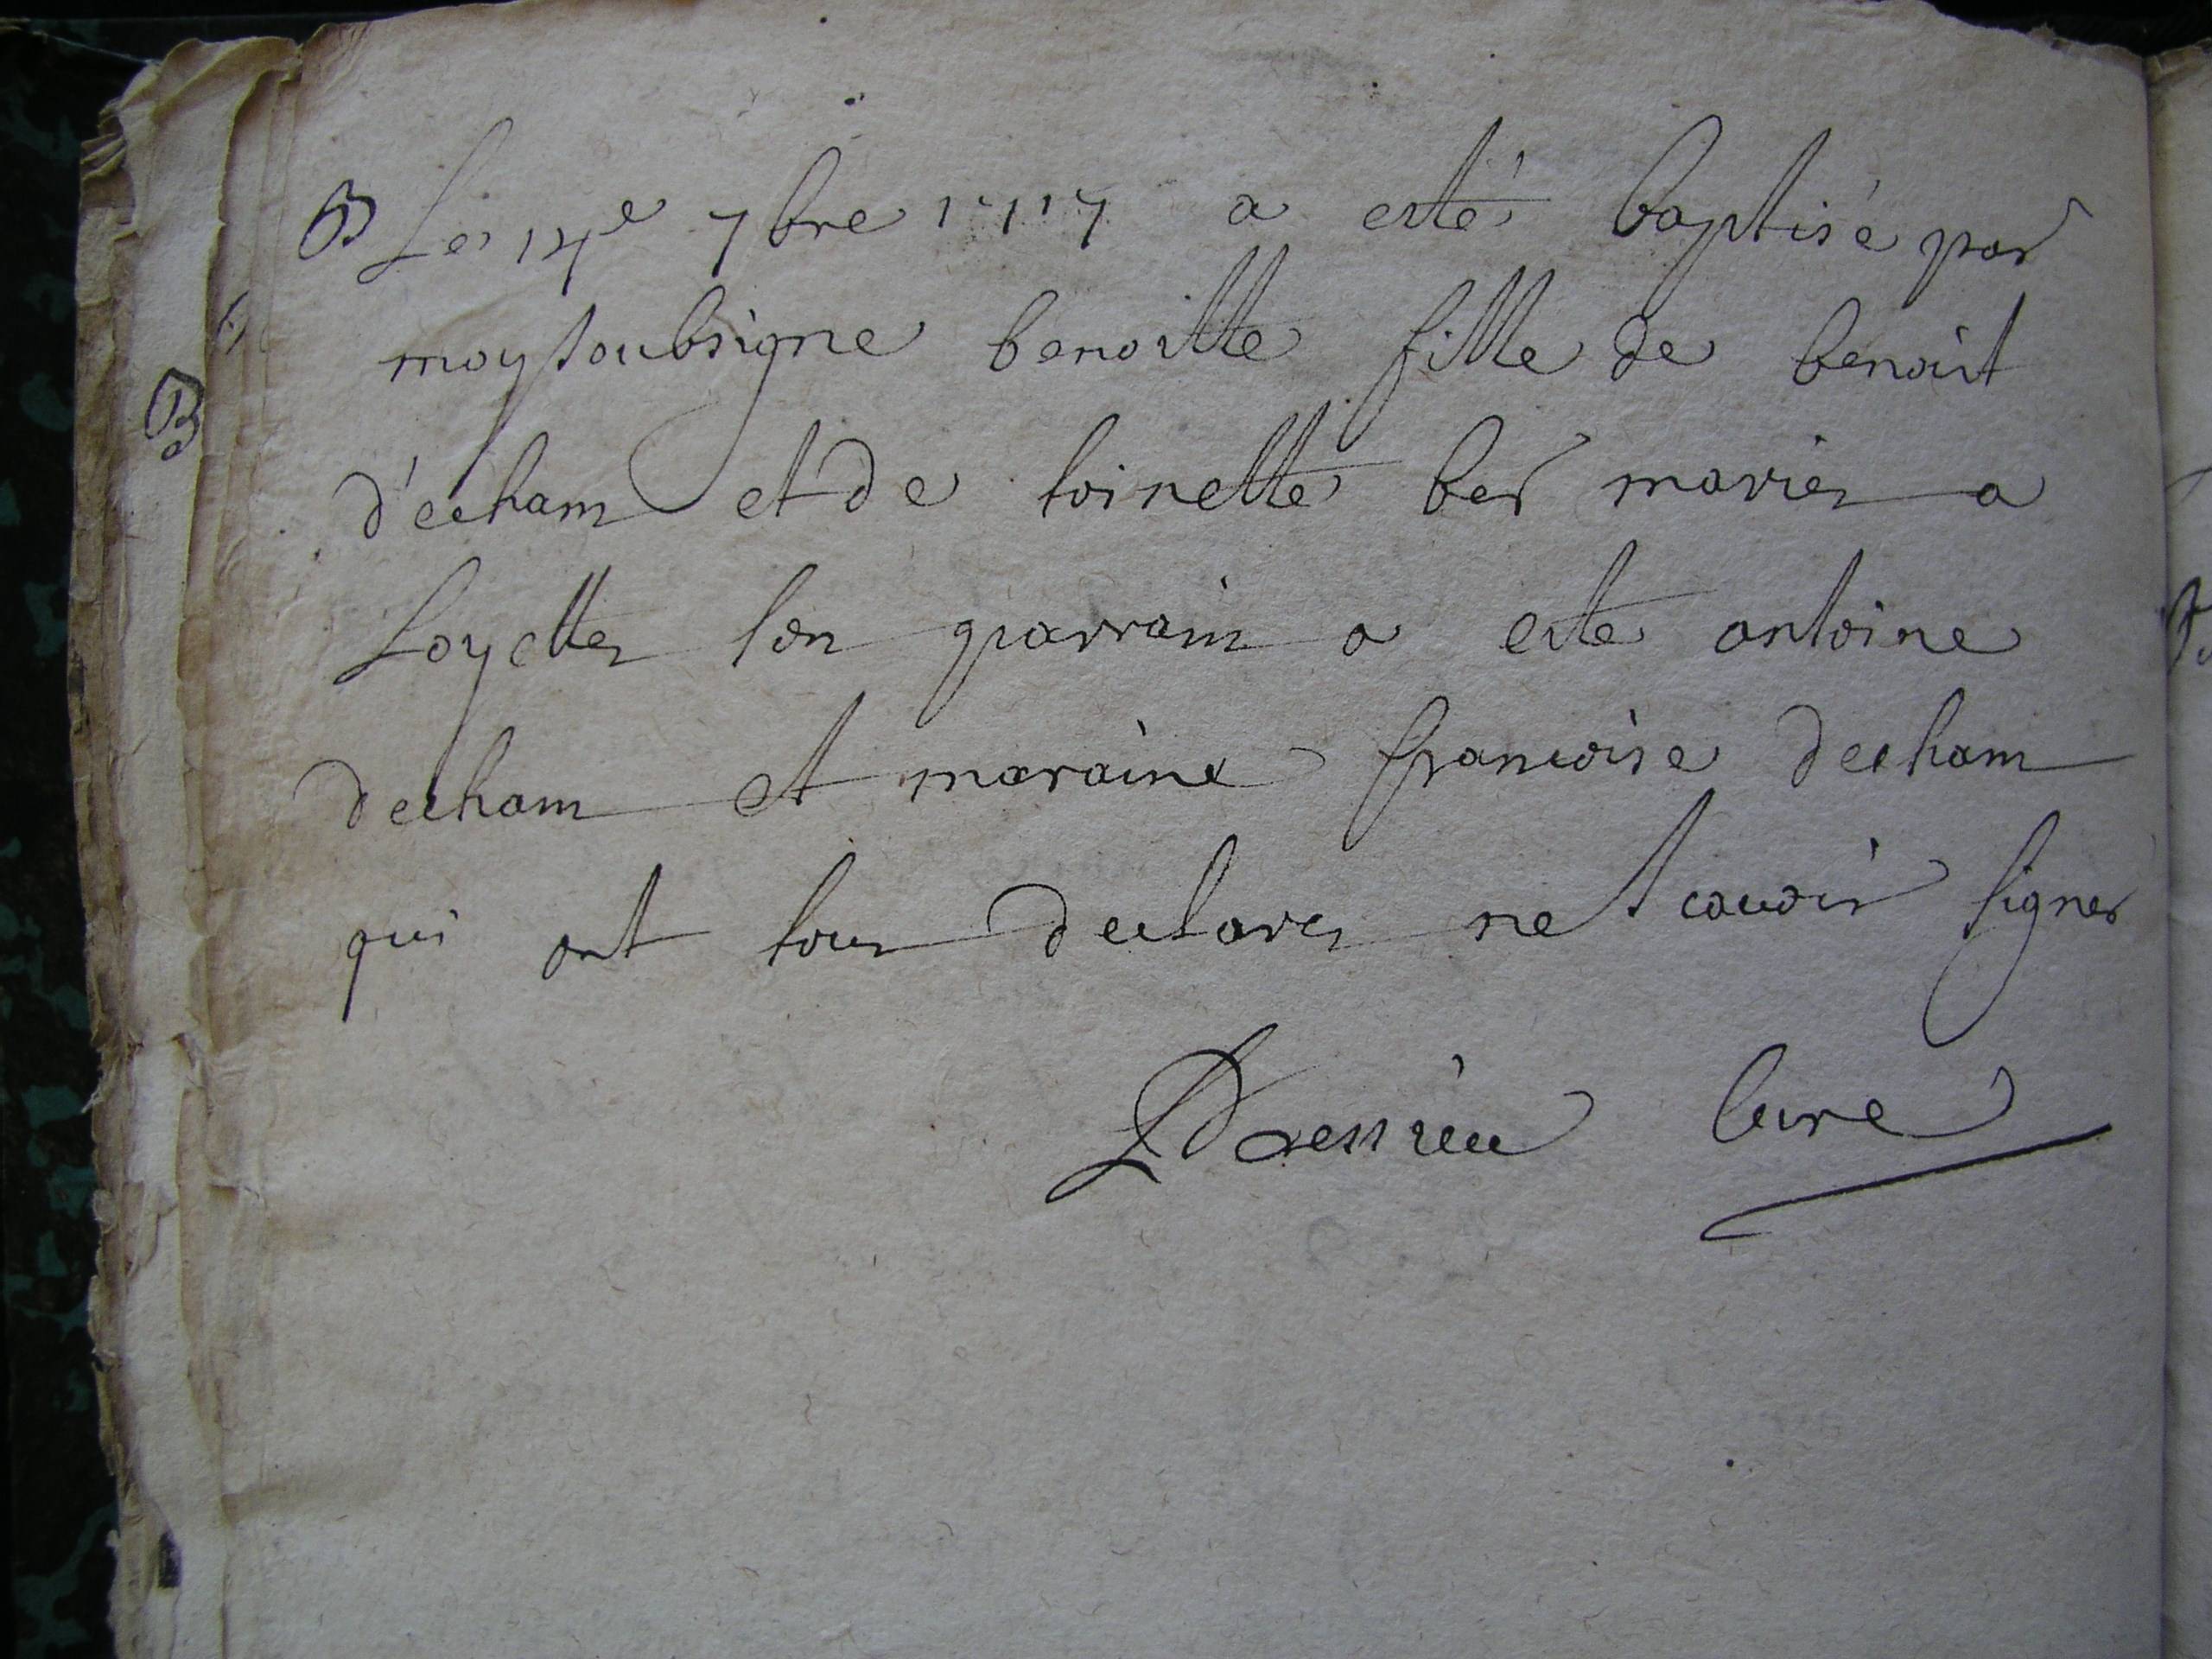 B Le 14e 7bre 1717 a esté baptisé par
moy soubsigne benoitte fille de benoist
d'echam et de toinette ber mariés a
Loyettes son parrain a este antoine
decham et maraine francoise decham
qui ont tous declarés ne scavoir signer
Dressieu Cure
B